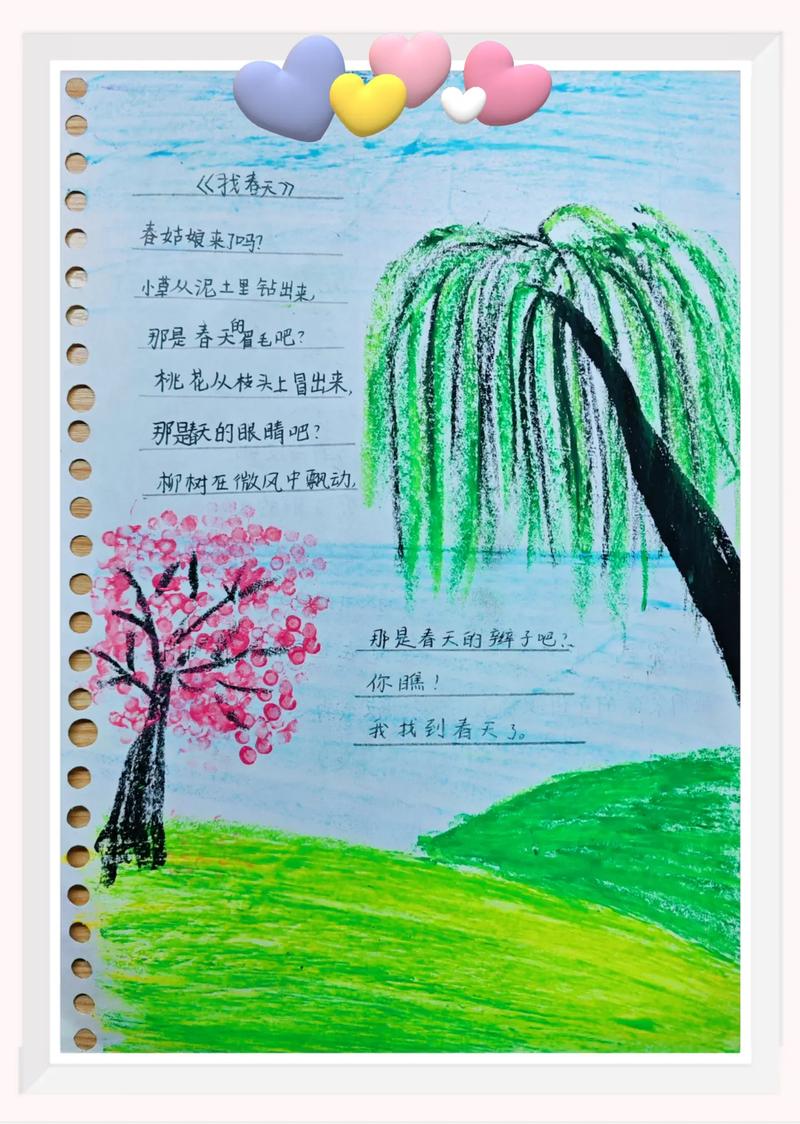 《找春天》
春姑娘来了吗?
小草从泥土里钻出来,
那是春天的眉毛吧?
桃花从枝头上冒出来,
那是春天的眼睛吧?
柳树在微风中飘动,
那是春天的辫子吧?
你瞧!
我找到春天了。